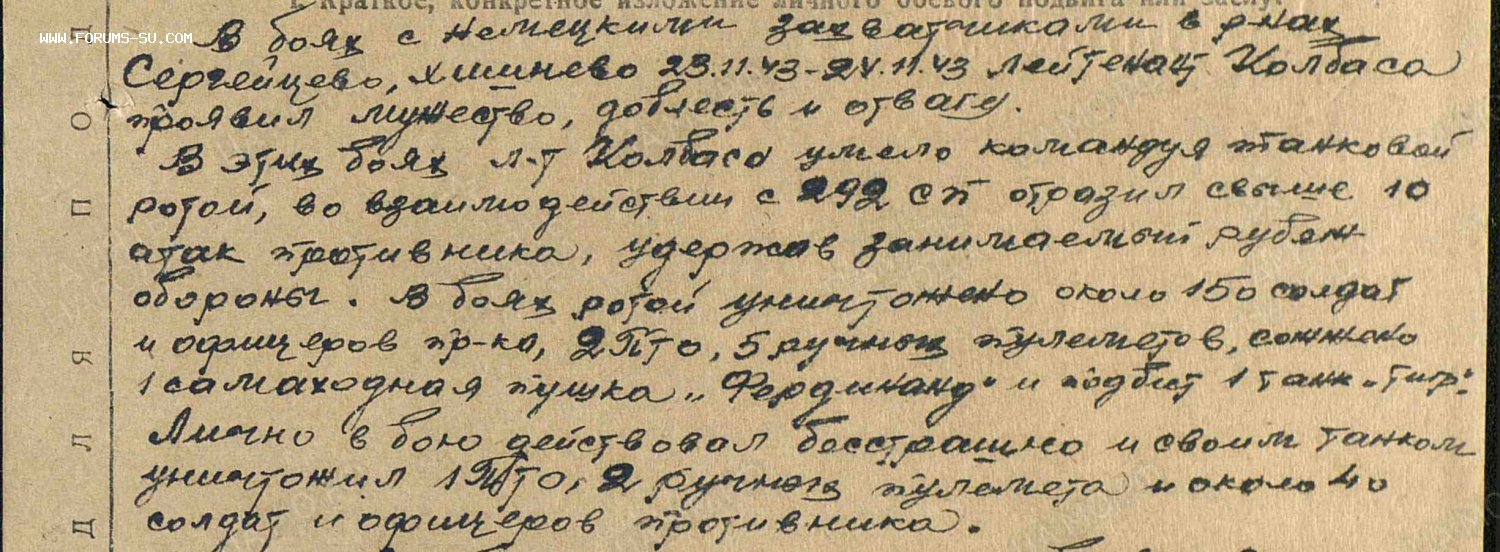 1. Краткое, конкретное изложение личного боевого подвига или заслу.
WWW.FORUMS-SU.COM
В боях с немецкими захватчиками в р-нах
Сергейцево, 23.11.43-24.11.43 лейтенант Колбаса
проявил мужество, доблесть и отвагу.
В этих боях л-т Колбаса умело командуя танковой
ротой, во взаимодействии с 292 сп отразил свыше 10
атак противника, удержав занимаемый рубеж
обороны. В боях ротой уничтожено около 150 солдат
и офицеров пр-ка, 2 ПТО, 5 ручных пулеметов, сожжено
1 самаходная пушка „Фердинанд" и подбит 1 танк „тигр".
Лично в бою действовал бесстрашно и своим танком
уничтожил 1 ПТО, 2 ручных пулемета и около 40
солдат и офицеров противника.
Д Л Я П О Д